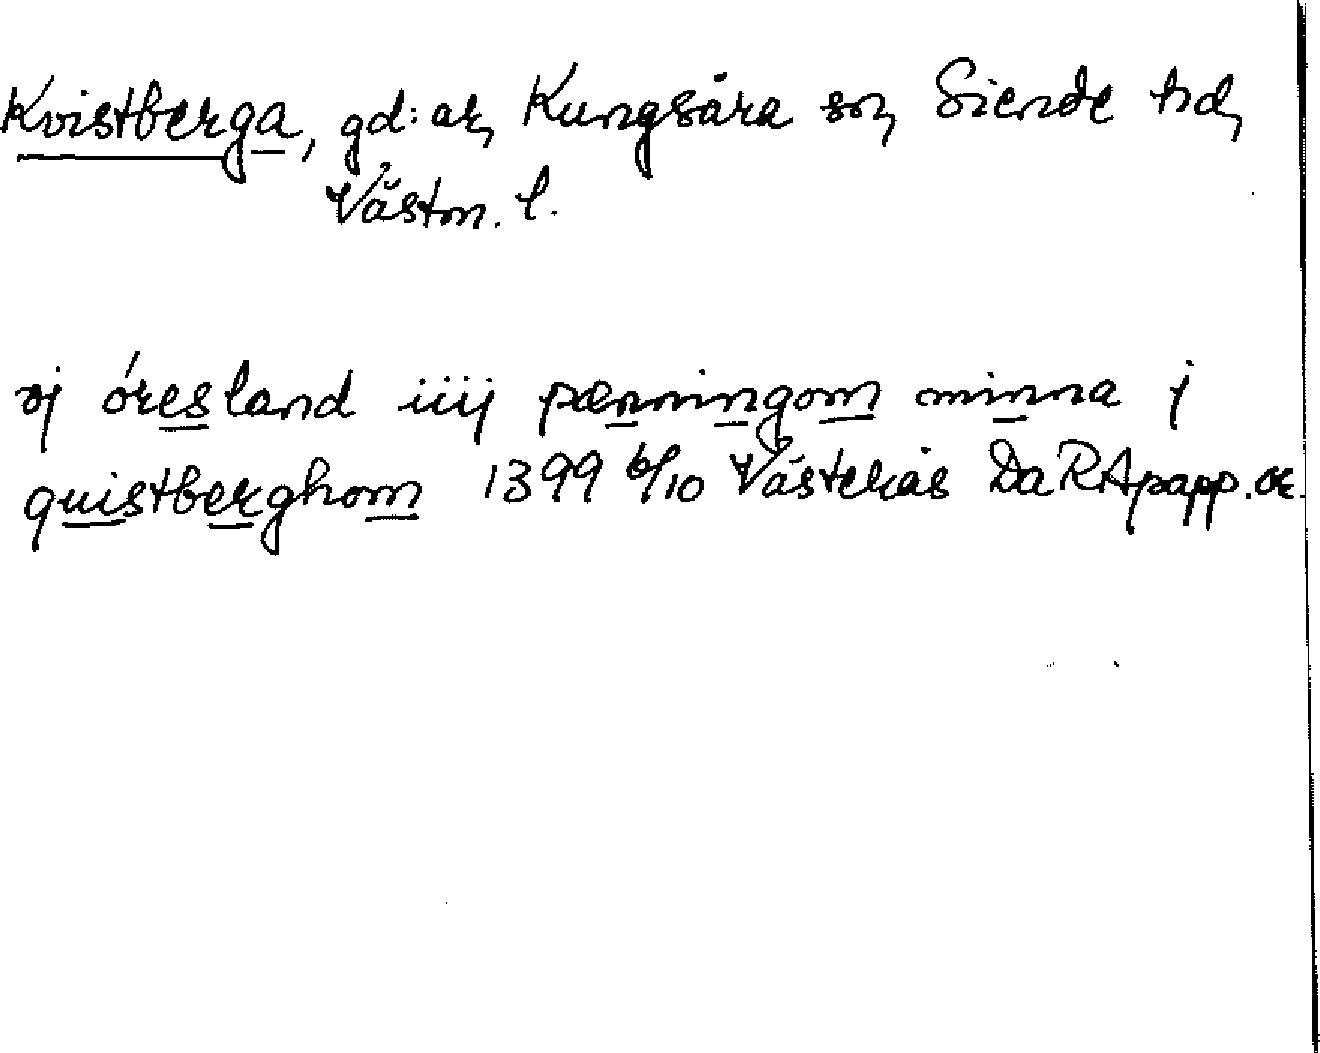 Kvistberga, gd:ar, Kungsåra sn, Siende hd,
Västm. l.
vj öresland iiij pænningom minna j
quistberghom 1399 6/10 Västerås DaRApapp. or.